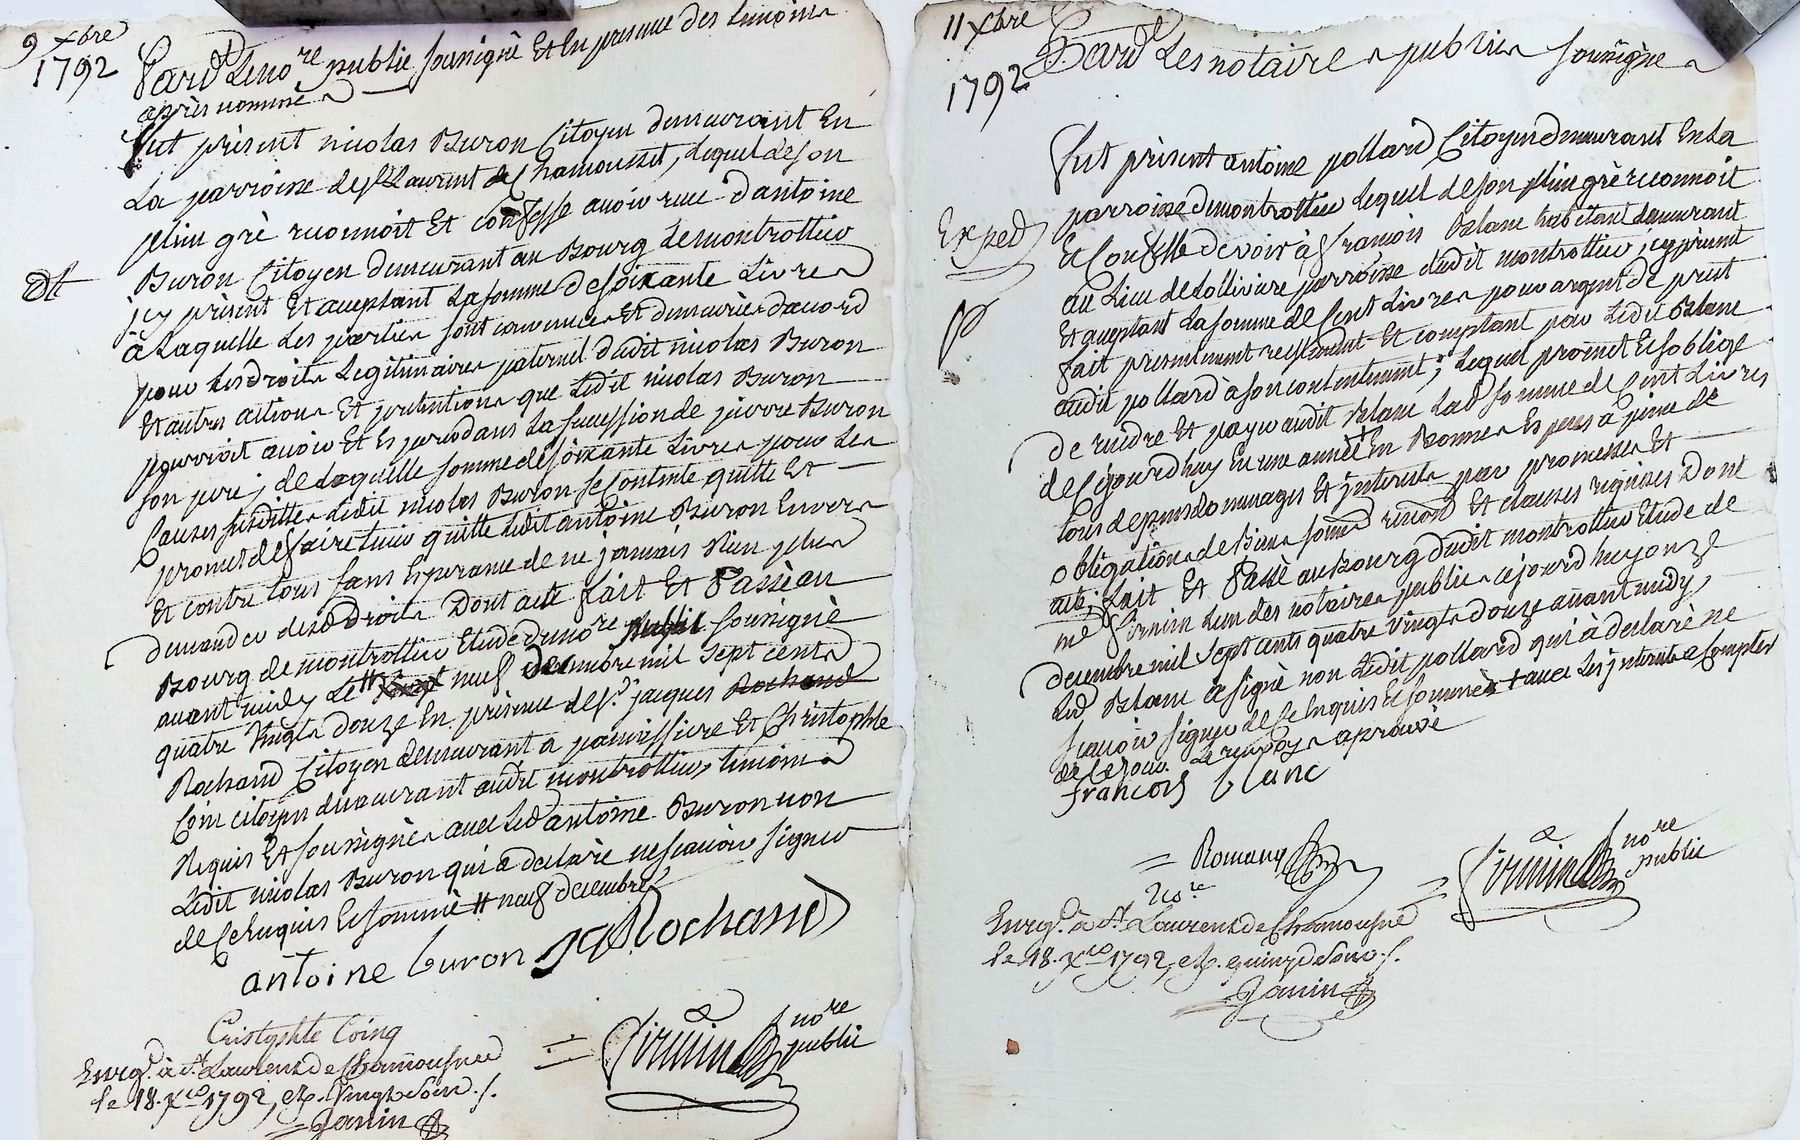 9 xbre
1792
Pard. Le nore public soussigné Et En presence des temoins
après nommés
fut présent nicolas Buron Citoyen demeurant En
La parroisse de st Laurent de Chamousset, lequel de son
plein gré reconnoit Et confesse avoir reçu d'antoine
Buron Citoyen demeurant au Bourg de montrottier
dt
jcy présent Et acceptant La somme de soixante Livres
à Laquelle Les parties sont convenues Et demeurées d'accord
pour Les droits Legitimaires paternel dudit nicolas Buron
Et autres actions Et pretentions que Ledit nicolas Buron
pourroit avoir Et Esperer dans La succession de pierre Buron
son pere ; de Laquelle somme de soixante Livres pour Les
Causes susdittes Ledit nicolas Buron se Contente quitte Et
promet de faire tenir quitte Ledit antoine Buron Envers
Et contre tous sans Esperance de ne jamais Rien plus
demander desd droits Dont acte fait Et Passé au
Bourg de montrottier Etude du nore public soussigné
avant midy Le # vingt neuf decembre mil sept cents
quatre Vingts douze En présence de sr. jacques Rochand
Rochand Citoyen demeurant a panissiere Et Christophle
Coin citoyen demeurant audit montrottier, temoins
Requis Et soussignés avec Led antoine Buron non
Ledit nicolas Buron qui a declaré ne scavoir signer
de Ce Enquis Et sommé # neuf decembre
antoine buron jq Rochand
Cristophle Coing
= Cirmin nore
public
Enrg. à St. Laurent de Chamousset
le 18. Xre 1792, R. Vingt sous. /.
= Janin
11 xbre
1792
Pard. Les notaires publics soussignés
fut présent antoine pollard Citoyen demeurant En La
parroisse de montrottier lequel de son plein gré reconnoit
Exped
Et Confesse devoir à françois Blanc habitant demeurant
au Lieu de Lollivière parroisse dudit montrottier, jcy présent
Et acceptant La somme de Cent Livres pour argent de prêt
fait presentement réellement Et comptant par Ledit Blanc
audit pollard à son contentement ; Lequel promet Et s'oblige
de rendre Et payer audit Blanc Lad somme de Cent Livres
de Cejourd'huy En une année + En Bonnes Especes a peine de
tous depens dommages Et jnterets par promesses Et
obligations de Biens soumis renon. Et clauses requises Dont
acte, fait Et Passé au Bourg dudit montrottier Etude de
me Cirmin L'un des notaires publics cejourd'huy onze
decembre mil sept cents quatre vingts douze avant midy,
Led Blanc a signé non Ledit pollard qui à declaré ne
scavoir signer de Ce Enquis Et sommés + avec Les jnterets a Compter
de Ce jour. Le renvoy aprouvé
francois blanc
= Romany
nore
= Cirmin nore
public
Enrg. à St. Laurent de Chamousset
le 18. Xre 1792, R. quinze sous. /.
Janin